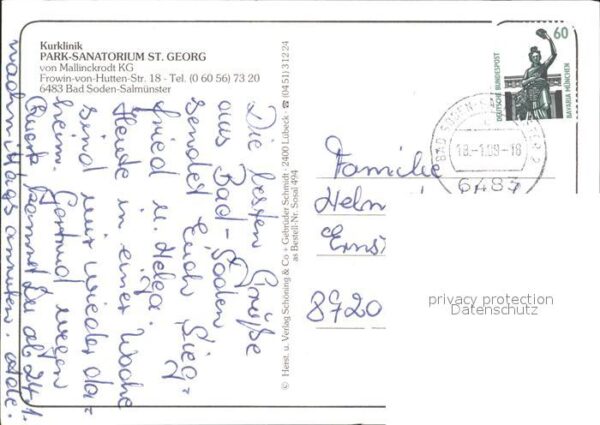 Kurklinik
PARK-SANATORIUM ST. GEORG
von Mallinckrodt KG
Frowin-von-Hutten-Str. 18 - Tel. (0 60 56) 73 20
6483 Bad Soden-Salmünster
Die besten Grüße
aus Bad-Soden
sendet Euch Sieg-
fried u. Helga.
Heute in einer Woche
sind wir wieder da-
heim. Gertrud wegen
Quark kannst Du ab 24.1.
nachmittags anrufen. Ade.
© Herst. u. Verlag Schöning & Co + Gebrüder Schmidt · 2400 Lübeck · ☎ (04 51) 3 12 24
as Bestell-Nr. Sosal 494
60
DEUTSCHE BUNDESPOST
BAVARIA MÜNCHEN
BAD SODEN-
6483
Familie
Helm
Ernst
8720
privacy protection
Datenschutz